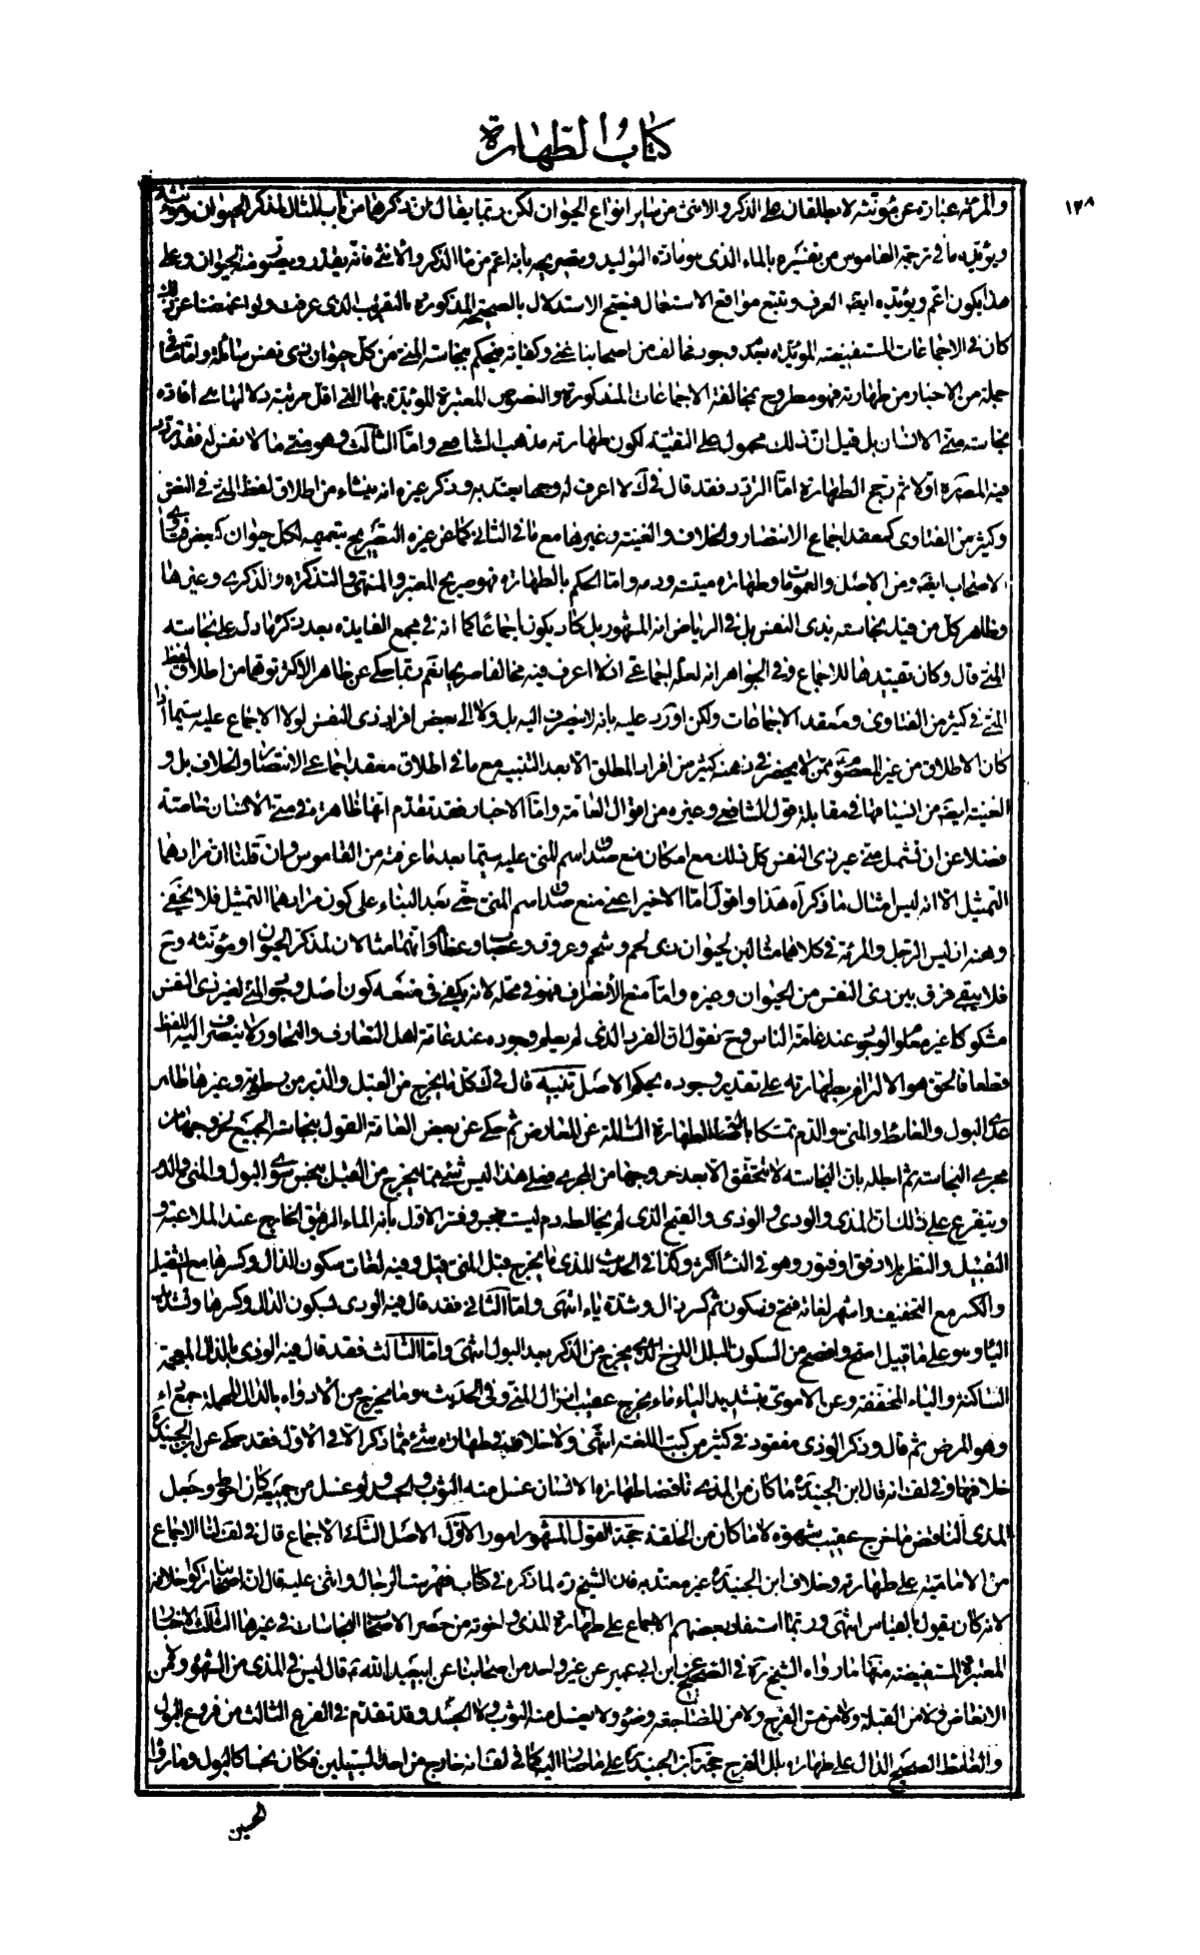 كتاب الطهارة
١٢٨
والمرئة عبارة عن مؤنثه لا يطلقان على الذكر والانثى من ساير انواع الحيوان لكن ربما يقال بان ذكرهما من باب المثال لمذكر الحيوان ومؤنثه
ويؤيده ما في ترجمة القاموس من تفسيره بالماء الذى هو مادة التوليد وتصريحه بانه اعم من ماء الذكر والانثى فانه يقدر ويصور منه الحيوان وعلى
هذا يكون اعم ويؤيده ايضا العرف وتتبع مواقع الاستعمال فيتضح الاستدلال بالصحيحة المذكورة بالتقريب الذى عرفت ولو اغمضنا عن ذلك
كان في الاجماعات المستفيضة المؤيدة بعدم وجود مخالف من اصحابنا غنى وكفاية فيحكم بنجاسة المنى من كل حيوان ذى نفس سائلة واما ما في
جملة من الاخبار من طهارته فهو مطروح بمخالفة الاجماعات المذكورة والنصوص المعتبرة المؤيدة بها التى اقل مرتبة دلالتها هى افادة
نجاسة منى الانسان بل قيل ان ذلك محمول على التقية لكون طهارته مذهب الشافعى واما الثالث وهو منى ما لا نفس له فقد تردد
فيه المعتبر اولا ثم رجح الطهارة اما التردد فقد قال في ك لا اعرف له وجها يعتد به وذكر غيره انه ينشاء من اطلاق لفظ المنى في النص
وكثير من الفتاوى كمعقد اجماع الانتصار والخلاف والغنية وغيرها مع ما في الثانى كما عن غيره التصريح بتعميمه لكل حيوان كبعض فتاوى
الاصحاب ايضا ومن الاصل والعمومات وطهارة ميتته ودمه واما الحكم بالطهارة فهو صريح المعتبر والمنتهى والتذكرة والذكرى وغيرها
وظاهر كل من قيد نجاسته بذى النفس بل في الرياض انه المشهور بل كاد يكون اجماعا كما انه في مجمع الفايدة بعد ذكر ما دل على نجاسة
المنى قال وكان تقييدها للاجماع وفي الجواهر انه لعله اجماعى اذ لا اعرف فيه مخالفا صريحا نعم ربما حكى عن ظاهر الاكثر توهما من اطلاق لفظ
المنى في كثير من الفتاوى ومعقد الاجماعات ولكن اورد عليه بانه لا ينصرف اليه بل ولا الى بعض افراد ذى النفس لولا الاجماع عليه سيما اذا
كان الاطلاق من غير المعصوم ممن لا يحضر في ذهنه كثير من افراد المطلق الا بعد التنبيه مع ما في اطلاق معقد اجماعى الانتصار والخلاف بل و
الغنية ايضا من انسياقها في مقابلة قول الشافعى وغيره من اقوال العامة واما الاخبار فقد تقدم انها ظاهرة في منى الانسان خاصة
فضلا عن ان تشمل منى غير ذى النفس كل ذلك مع امكان منع صدق اسم المنى عليه سيما بعد ما عرفته من القاموس وان قلنا ان مرادهما
التمثيل الا انه ليس امثال ما ذكر آه هذا واقول اما الاخير اعنى منع صدق اسم المنى حتى بعد البناء على كون مرادهما التمثيل فلا يخفى
وهنه اذ ليس الرجل والمرئة في كلامهما مثالين لحيوان ذى لحم وشحم وعروق وعصب وعظم وانما مثالان لمذكر الحيوان او مؤنثه وح
فلا يبقى فرق بين ذى النفس من الحيوان وغيره واما منع الانصراف فهو في محله لانه يكفى في منعه كون اصل وجود المنى لغير ذى النفس
مشكوكا غير معلوم الوجود عند عامة الناس وح نقول ان الفرد الذى لم يعلم وجوده عند عامة اهل التعارف والتحاور لا ينصرف اليه اللفظ
قطعا فالحق هو الالتزام بطهارته على تقدير وجوده بحكم الاصل تنبيه قال في ك كل ما يخرج من القبل والدبر من رطوبة وغيرها طاهر
عدا البول والغائط والمنى والدم تمسكا بالاصل الطهارة السالمة عن المعارض ثم حكى عن بعض العامة القول بنجاسة الجميع لخروجها من
مجرى النجاسة ثم ابطله بان النجاسة لا تتحقق الا بعد خروجها من المجرى فعلى هذا ليس شىء مما يخرج من القبل بنجس سوى البول والمنى والدم
ويتفرع على ذلك ان المذى والودى والوذى والقيح الذى لم يخالطه دم ليست بنجس وفسر الاول بانه الماء الرقيق الخارج عند الملاعبة و
التقبيل والنظر بلا دفق او فتور وهو في النساء اكثر وكذا في الحديث المذى ما يخرج قبل المنى قيل وفيه لغات سكون الذال وكسرها مع التثقيل
والكسر مع التخفيف واشهر لغاته فتح فسكون ثم كسر ذال وشدة ياء انتهى واما الثانى فقد قال فيه الودى بسكون الدال وكسرها وتشديد
الياء وهو على ما قيل اصح وافصح من السكون البلل اللزج الذى يخرج من الذكر بعد البول انتهى واما الثالث فقد قال فيه الوذى بالذال المعجمة
الساكنة والياء المخففة وعن الاموى بتشديد الياء ماء يخرج عقيب انزال المنى وفي الحديث هو ما يخرج من الادواء بالدال المهملة جمع داء
وهو المرض ثم قال وذكر الوذى مفقود في كثير من كتب اللغة انتهى ولا خلاف في طهارة شىء مما ذكر الا في الاول فقد حكى عن ابن الجنيد ره
خلافها وفي لف انه قال ابن الجنيد ره ما كان من المذى ناقضا طهارة الانسان غسل منه الثوب والجسد ولو غسل من جميعه كان احوط وجعل
المذى الناقض ما خرج عقيب شهوة لا ما كان من الخلقة حجة القول المشهور امور الاول الاصل الثانى الاجماع قال في لف لنا الاجماع
من الامامية على طهارته وخلاف ابن الجنيد ره غير معتد به فان الشيخ ره لما ذكره في كتاب فهرست الرجال واثنى عليه قال ان اصحابنا تركوا خلافه
لانه كان يقول بالقياس انتهى وربما استفاد بعضهم الاجماع على طهارة المذى واخوته من حصر الاصحاب النجاسات في غيرها الثالث الاخبار
المعتبرة المستفيضة منها ما رواه الشيخ ره في الصحيح عن ابن ابى عمير عن غير واحد من اصحابنا عن ابيعبد الله ع قال ليس في المذى من الشهوة ولا من
الانعاظ ولا من القبلة ولا من مس الفرج ولا من المضاجعة وضوء ولا يغسل منه الثوب ولا الجسد وقد تقدم في الفرع الثالث من فروع البول
والغائط الصحيح الدال على طهارة بلل الفرج حجة ابن الجنيد ره على ما صار اليه كما في لف انه خارج من احد السبيلين فكان نجسا كالبول وما رواه
الحسين